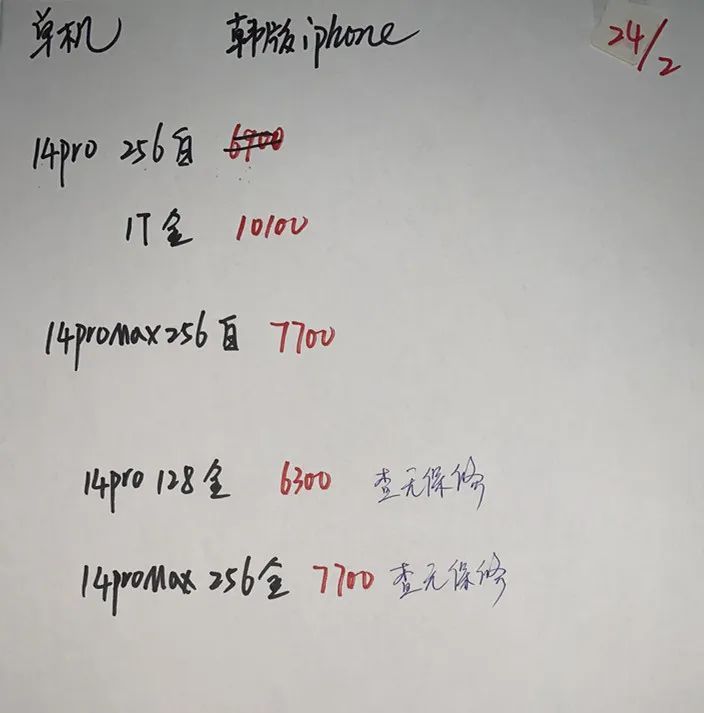 单机 韩版iphone 24/2
14pro 256白 6900
1T金 10100
14proMax 256白 7700
14pro 128金 6300 查无保修
14proMax 256金 7700 查无保修